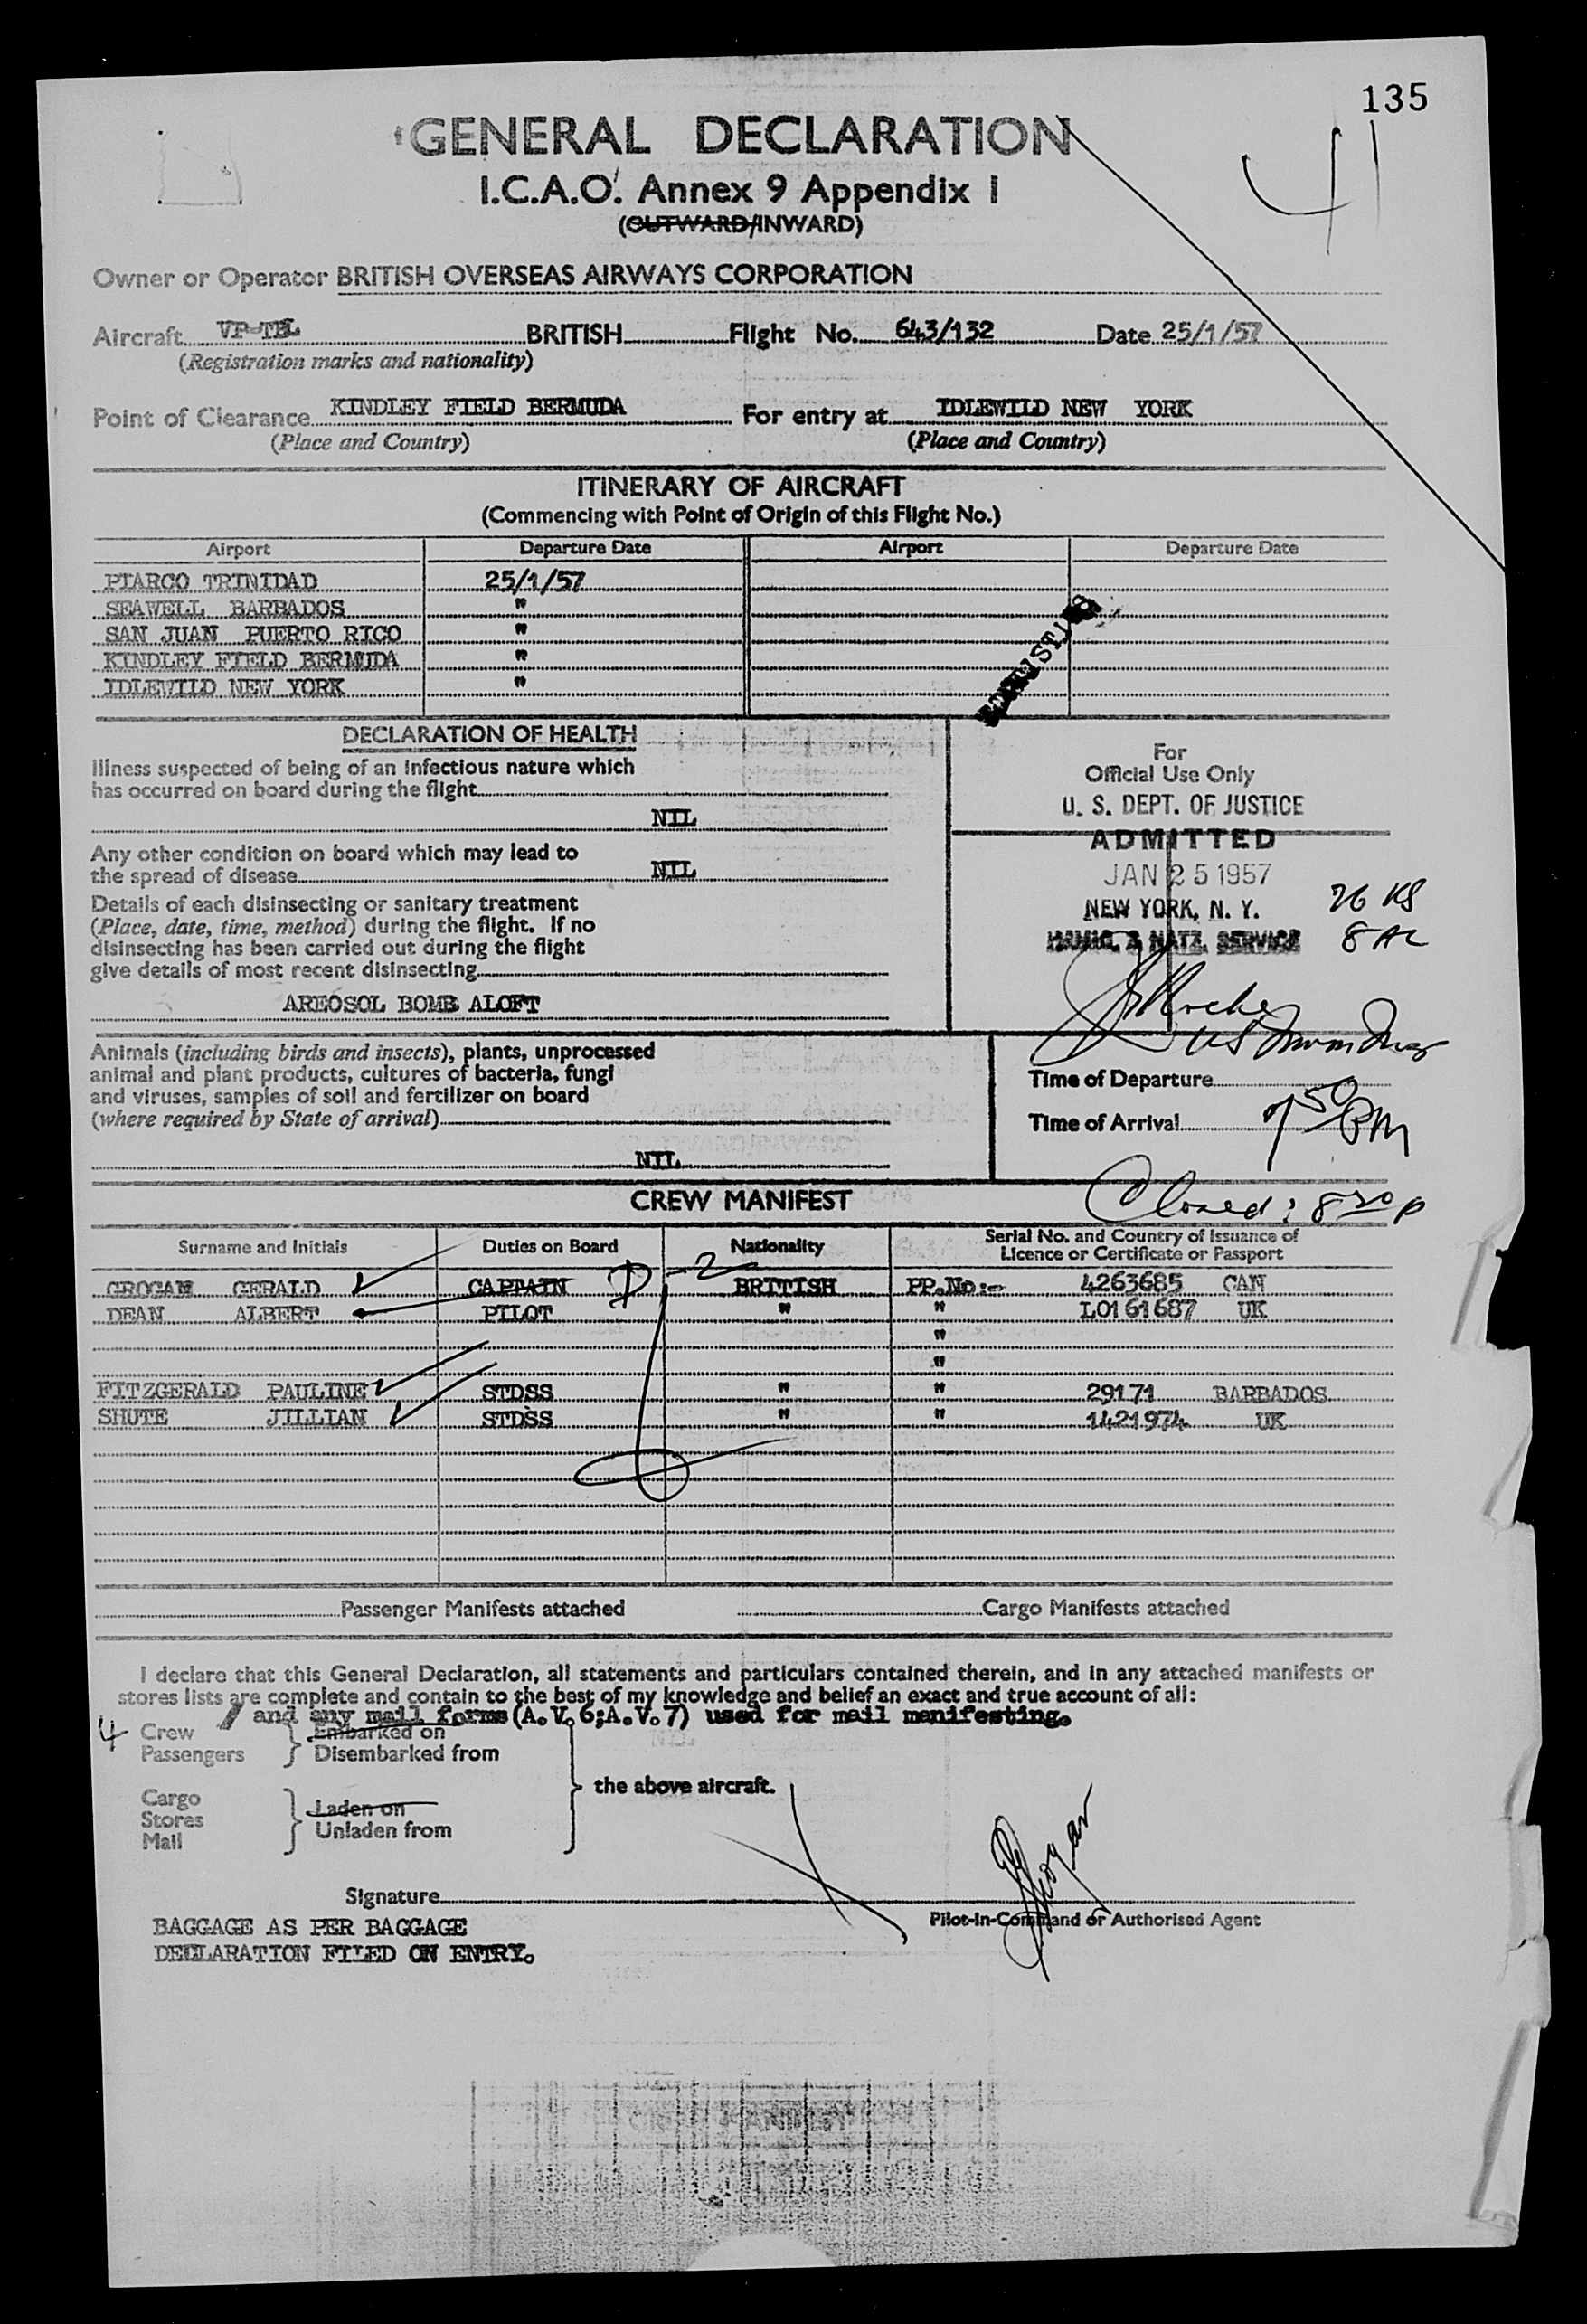 135
GENERAL DECLARATION
I.C.A.O. Annex 9 Appendix I
(OUTWARD/INWARD)
41
Owner or Operator BRITISH OVERSEAS AIRWAYS CORPORATION
Aircraft VP-TBL BRITISH Flight No. 643/132 Date 25/1/57
(Registration marks and nationality)
Point of Clearance KINDLEY FIELD BERMUDA For entry at IDLEWILD NEW YORK
(Place and Country) (Place and Country)
ITINERARY OF AIRCRAFT
(Commencing with Point of Origin of this Flight No.)
Airport Departure Date Airport Departure Date
PIARCO TRINIDAD 25/1/57
SEAWELL BARBADOS "
SAN JUAN PUERTO RICO "
KINDLEY FIELD BERMUDA "
IDLEWILD NEW YORK "
DECLARATION OF HEALTH
Illness suspected of being of an infectious nature which
has occurred on board during the flight
NIL
Any other condition on board which may lead to
the spread of disease NIL
Details of each disinsecting or sanitary treatment
(Place, date, time, method) during the flight. If no
disinsecting has been carried out during the flight
give details of most recent disinsecting
AREOSOL BOMB ALOFT
For
Official Use Only
U. S. DEPT. OF JUSTICE
ADMITTED
JAN 25 1957
NEW YORK, N. Y.
IMMIG. & NATZ. SERVICE
8 AL
Animals (including birds and insects), plants, unprocessed
animal and plant products, cultures of bacteria, fungi
and viruses, samples of soil and fertilizer on board
(where required by State of arrival)
NIL
Time of Departure
Time of Arrival 7 50 PM
Closed: 8 30 p
CREW MANIFEST
Surname and Initials Duties on Board Nationality Serial No. and Country of Issuance of
Licence or Certificate or Passport
GROGAN GERALD CAPTAIN D-2 BRITISH PP.No:- 4263685 CAN
DEAN ALBERT PILOT " " L0161687 UK
"
"
FITZGERALD PAULINE STDSS " " 29171 BARBADOS
SHUTE JILLIAN STDSS " " 1421974 UK
Passenger Manifests attached Cargo Manifests attached
I declare that this General Declaration, all statements and particulars contained therein, and in any attached manifests or
stores lists are complete and contain to the best of my knowledge and belief an exact and true account of all:
/ and any mail forms (A.V.6;A.V.7) used for mail manifesting.
4 Crew Embarked on
Passengers Disembarked from
the above aircraft.
Cargo Laden on
Stores Unladen from
Mail
Signature Grogan
Pilot-in-Command or Authorised Agent
BAGGAGE AS PER BAGGAGE
DECLARATION FILED ON ENTRY.